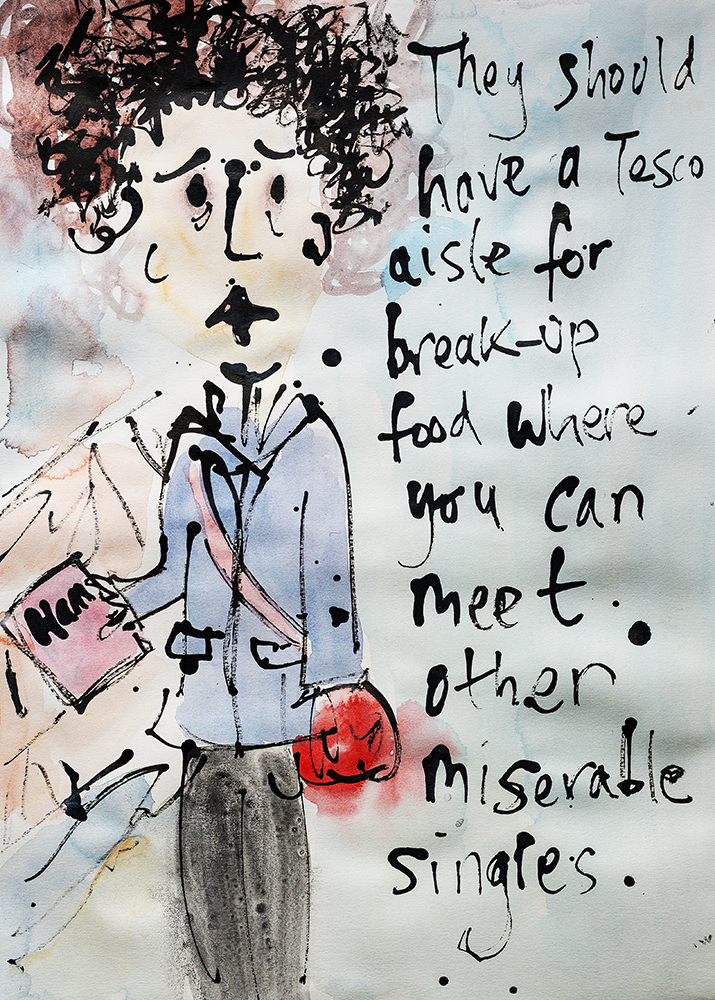 They should
have a Tesco
aisle for
break-up
food where
you can
meet
other
miserable
singles.
Ham